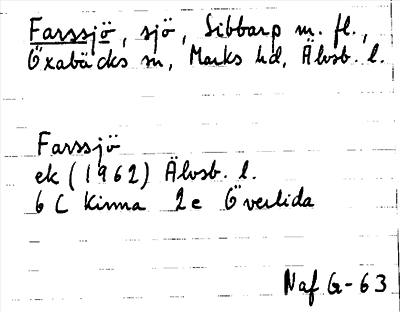 Farssjö, sjö, Sibbarp m. fl.,
Öxabäcks sn, Marks hd, Älvsb. l.
Farssjö
ek (1962) Älvsb. l.
6 C Kinna 2e Överlida
Naf G-63